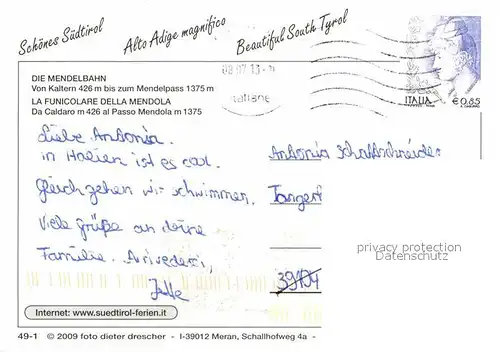 Schönes Südtirol
Alto Adige magnifico
Beautiful South Tyrol
ITALIA
€0,85
DIE MENDELBAHN
Von Kaltern 426 m bis zum Mendelpass 1375 m
LA FUNICOLARE DELLA MENDOLA
Da Caldaro m 426 al Passo Mendola m 1375
Liebe Antonia.
in Italien ist es cool.
Gleich gehen wir schwimmen.
Viele Grüße an deine
Familie. Arivederci,
Jette
Antonia Schaffschneider
Tangert
39104
privacy protection
Datenschutz
Internet: www.suedtirol-ferien.it
49-1 © 2009 foto dieter drescher - I-39012 Meran, Schallhofweg 4a -